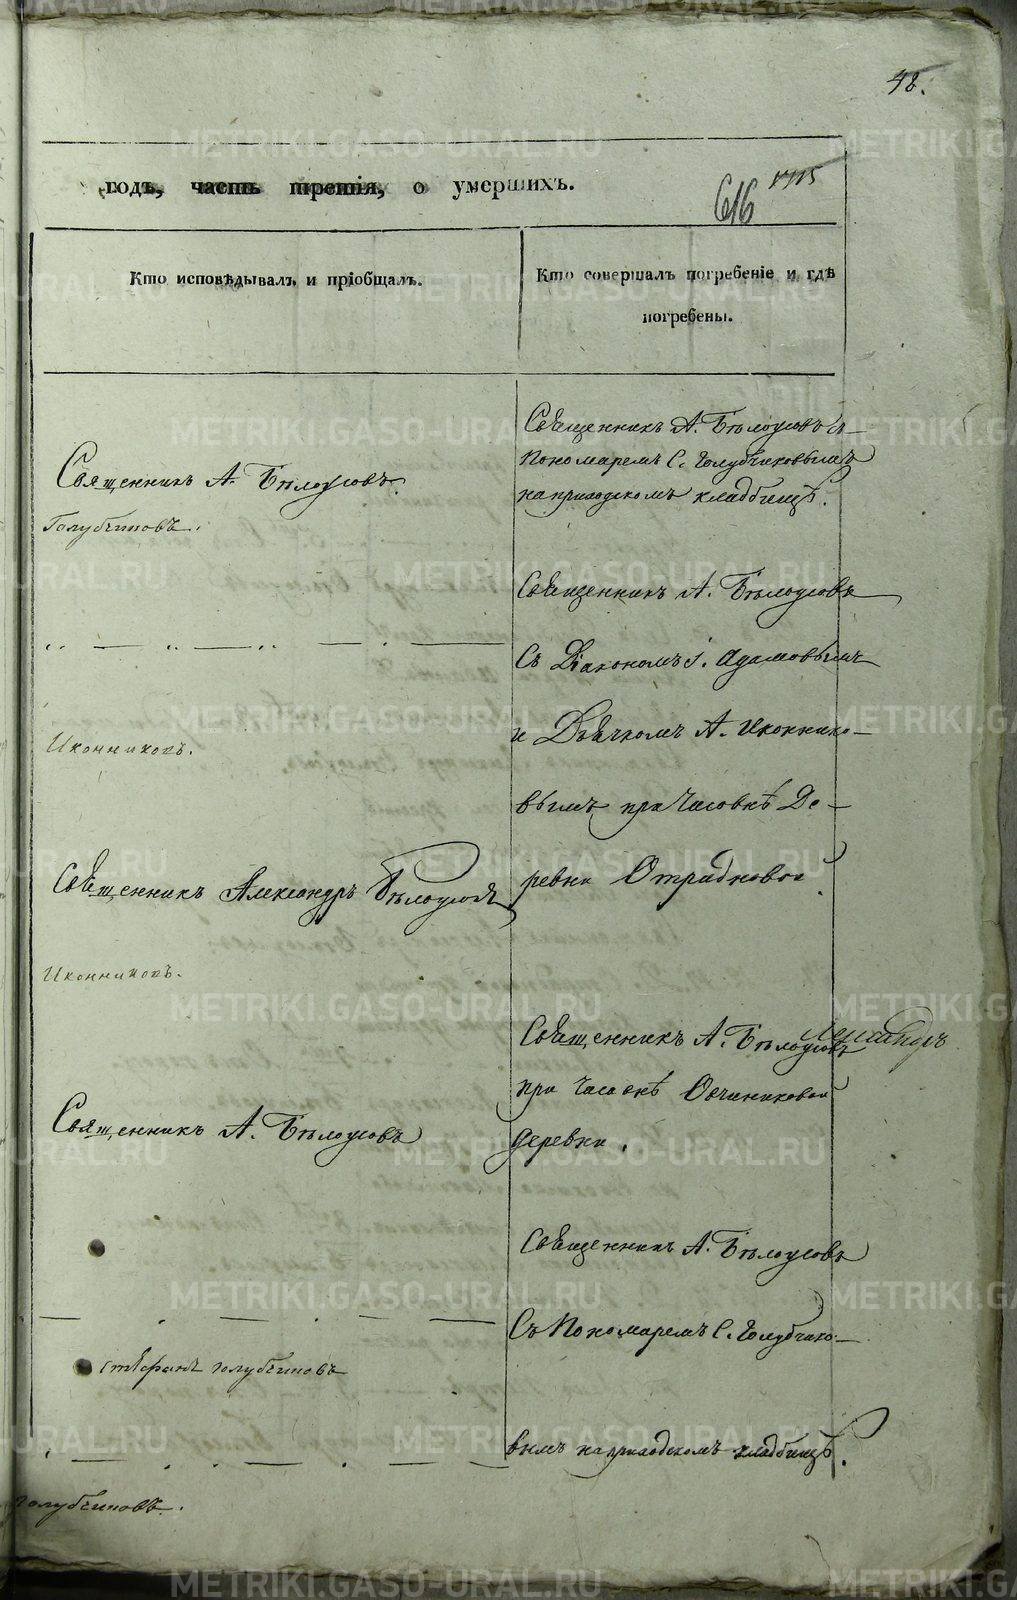 48.
годъ, часть третія, о умершихъ.
616
Кто исповѣдывалъ и пріобщалъ.
Кто совершалъ погребеніе и гдѣ
погребены.
Священникъ А. Бѣлоусовъ съ
Пономаремъ С. Голубчиковымъ
на приходскомъ кладбищѣ.
Священникъ А. Бѣлоусовъ.
Голубчиковъ.
Священникъ А. Бѣлоусовъ
съ Діакономъ І. Адамовымъ
и Дьячкомъ А. Иконнико-
вымъ при Часовнѣ Де-
ревни Отрадновой.
Иконниковъ.
Священникъ Александръ Бѣлоусовъ
Иконниковъ.
Священникъ А. Бѣлоусовъ
Александръ
при Часовнѣ Овчинниковой
деревни.
Священникъ А. Бѣлоусовъ
Священникъ А. Бѣлоусовъ
съ Пономаремъ С. Голубчико-
вымъ на приходскомъ кладбищѣ.
Стефанъ Голубчиковъ
Голубчиковъ.
METRIKI.GASO-URAL.RU